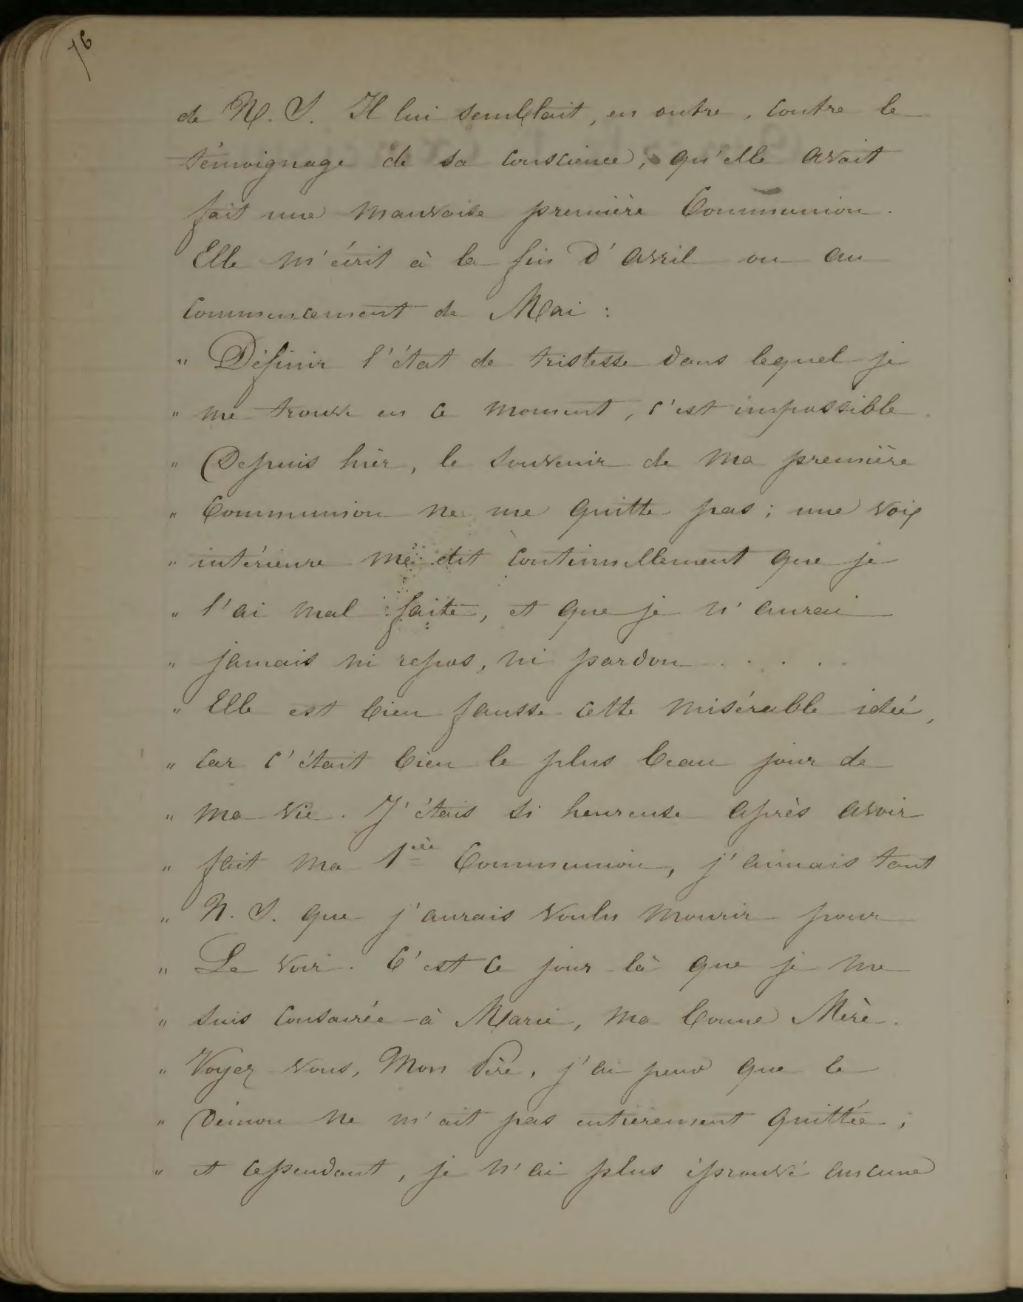 76
de N. S. Il lui semblait, en outre, contre le
témoignage de sa conscience, qu'elle avait
fait une mauvaise première Communion.
Elle m'écrit à la fin d'avril ou au
commencement de Mai :
" Définir l'état de tristesse dans lequel je
" me trouve en ce moment, c'est impossible.
" Depuis hier, le souvenir de ma première
" Communion ne me quitte pas ; une voix
" intérieure me dit continuellement que je
" l'ai mal faite, et que je n'aurai
" jamais ni repos, ni pardon . . . . .
" Elle est bien fausse cette misérable idée,
" car c'était bien le plus beau jour de
" ma vie. J'étais si heureuse après avoir
" fait ma 1ère Communion, j'aimais tant
" N. S. que j'aurais voulu mourir pour
" Le voir. C'est ce jour là que je me
" suis consacrée à Marie, ma bonne Mère.
" Voyez vous, Mon Père, j'ai peur que le
" Démon ne m'ait pas entièrement quittée ;
" et cependant, je n'ai plus éprouvé aucune